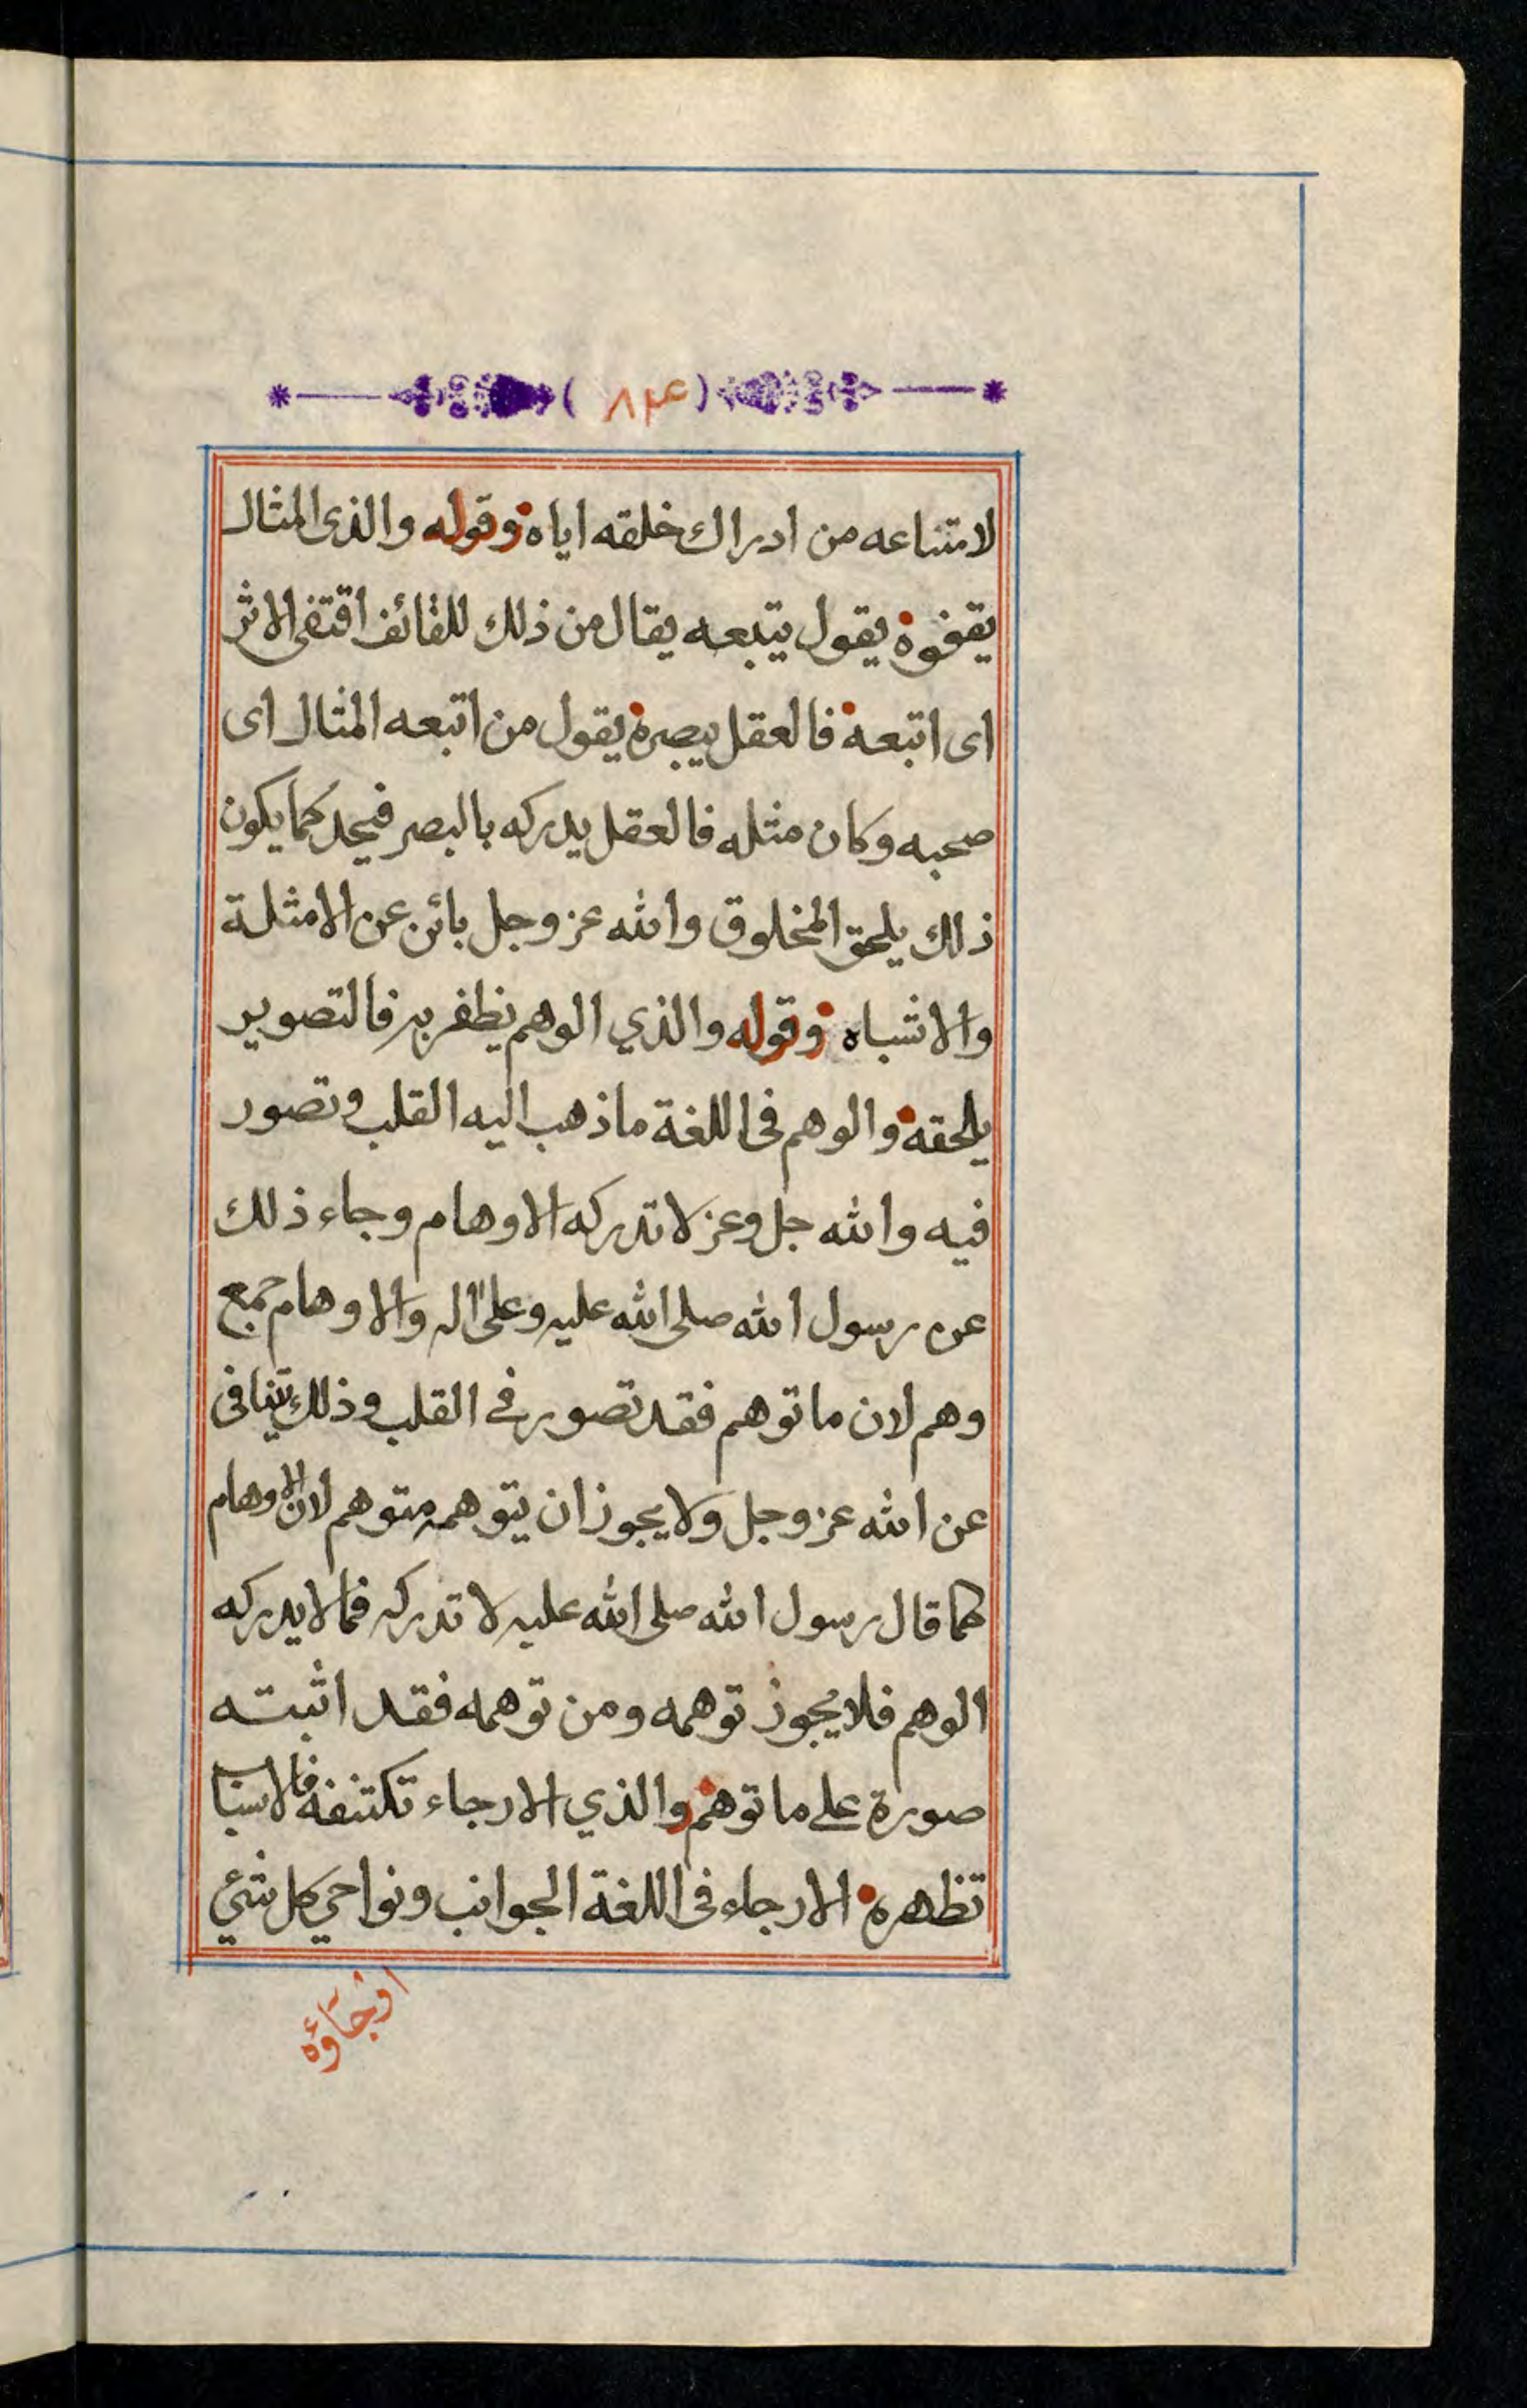 ( ٨٣٤ )
لامتناعه من ادراك خلقه اياه وقوله والذى المثال
يقفوه يقول يتبعه يقال من ذلك للقائف اقتفى الاثر
اى اتبعه فالعقل يبصره يقول من اتبعه المثال اى
صحبه وكان مثله فالعقل يدركه بالبصر فيحد كما يكون
ذلك يلحق المخلوق والله عز وجل بائن عن الامثلة
والاشباه وقوله والذي الوهم يظفر به فالتصوير
يلحقه والوهم فى اللغة ما ذهب اليه القلب وتصور
فيه والله جل وعز لا تدركه الاوهام وجاء ذلك
عن رسول الله صلى الله عليه وعلى اله والاوهام جمع
وهم لان ما توهم فقد تصور في القلب وذلك يتنافى
عن الله عز وجل ولا يجوز ان يتوهمه متوهم لان الاوهام
كما قال رسول الله صلى الله عليه لا تدركه فما لا يدركه
الوهم فلا يجوز توهمه ومن توهمه فقد اثبته
صورة على ما توهم والذي الارجاء تكتنفه فالاسبا
تظهره الارجاء فى اللغة الجوانب ونواحي كل شئي
ارجاؤه